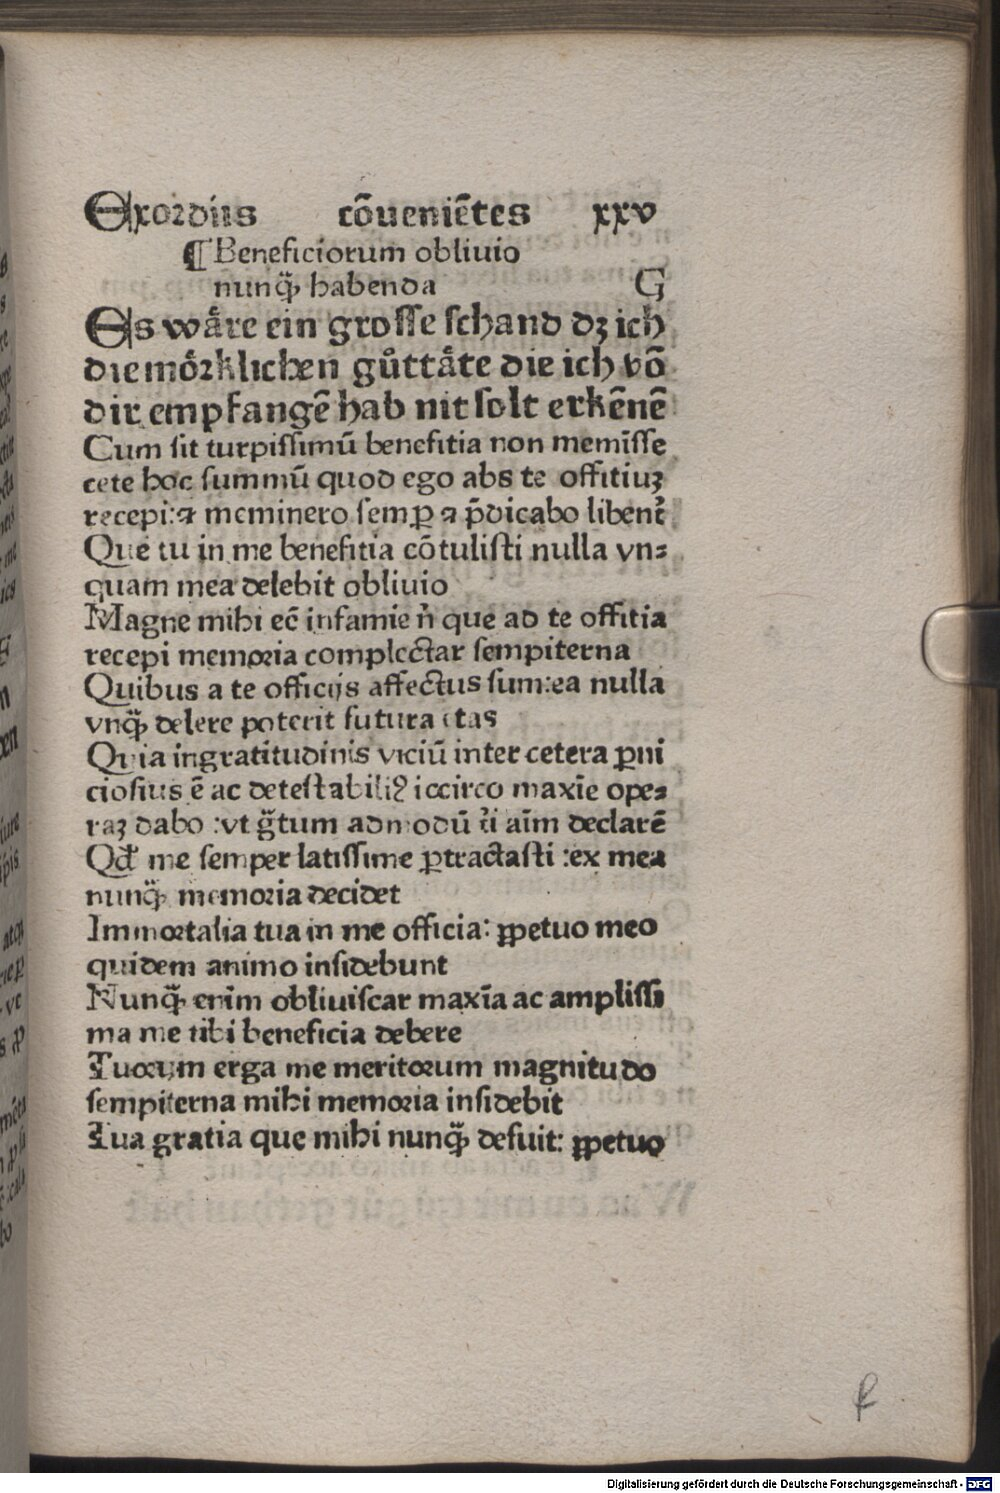 Exordiis cōueniētes xxv
¶ Beneficiorum obliuio
nunq̄ȝ habenda G
Es wåre ein grosse schand dz ich
die mörklichen gůttåte die ich vō
dir empfangē hab nit solt erkēnē
Cum sit turpissimū benefitia non memīsse
cete hoc summū quod ego abs te offitiuȝ
recepi: ⁊ meminero semꝑ ⁊ p̄dicabo libent᷑
Que tu in me benefitia cōtulisti nulla vn⸗
quam mea delebit obliuio
Magne mihi eē infamie ń que ad te offitia
recepi memoria complectar sempiterna
Quibus a te officijs affectus sum: ea nulla
vnq̄ȝ delere poterit futura etas
Quia ingratitudinis viciū inter cetera ꝑni
ciosius ē ac detestabiliꝰ iccirco maxīe ope⸗
raȝ dabo : vt g̃tum admodū t᷑i aīm declarē
Qđ me semper latissime ꝑtractasti : ex mea
nunq̄ȝ memoria decidet
Immortalia tua in me officia: ꝑpetuo meo
quidem animo insidebunt
Nunq̄ȝ enīm obliuiscar maxīa ac amplissi
ma me tibi beneficia debere
Tuorum erga me meritorum magnitudo
sempiterna mihi memoria insidebit
Tua gratia que mihi nunq̄ȝ defuit: ꝑpetuo
Digitalisierung gefördert durch die Deutsche Forschungsgemeinschaft - DFG